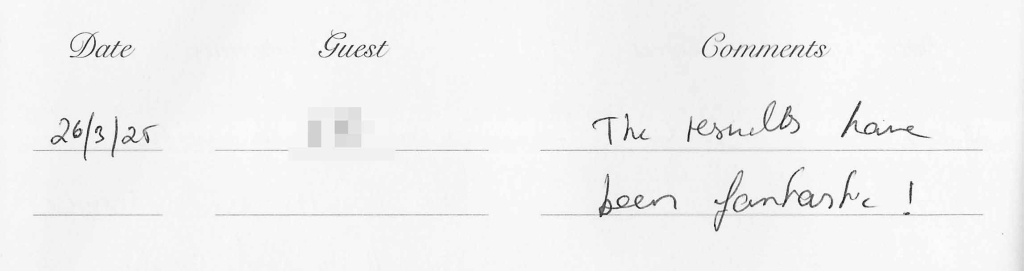 Date Guest Comments
26/3/25 The results have
been fantastic!